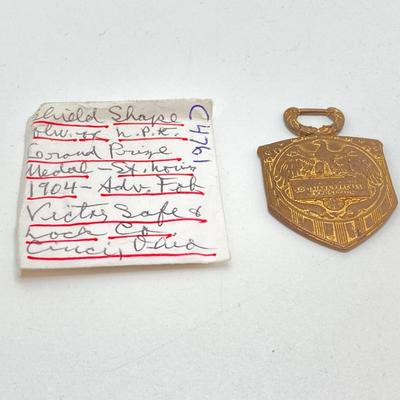 Shield Shape
N.P.R.
Grand Prize
Medal - St. Louis
1904 - Adv. Fob
Victor Safe &
Lock Co.
Cinci, Ohio
C4761